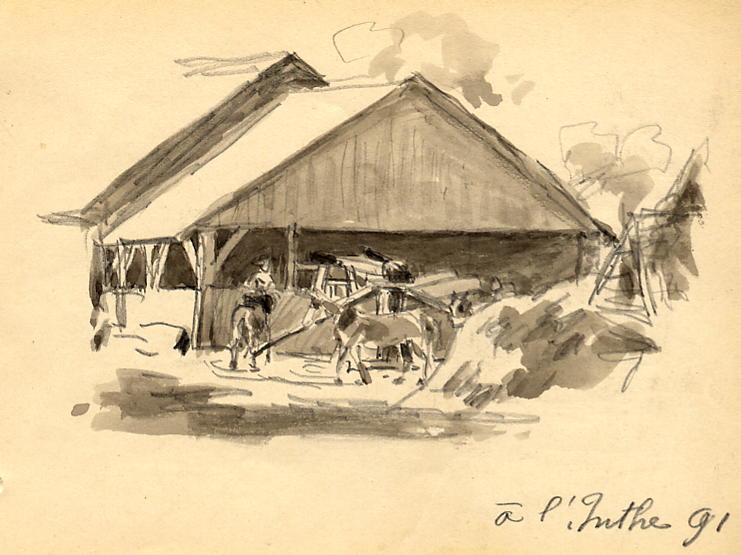 à l'Inthe 91